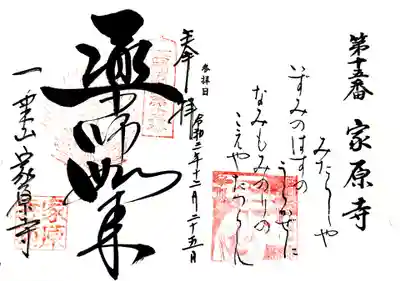 第十五番 家原寺
みたらしや
いずみのはすの
うらかぜに
なみもみのりの
こえやたつらん
参拝日
奉拝
令和二年十二月二十五日
薬師如来
一乗山 家原寺